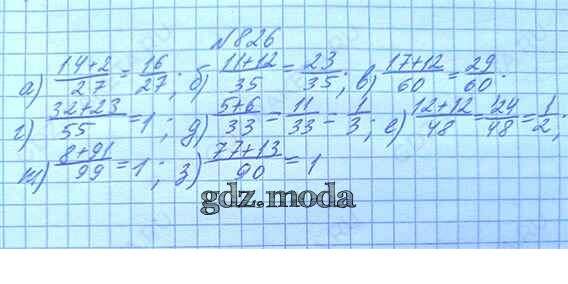 №826
а) 14+2/27 = 16/27; б) 11+12/35 = 23/35; в) 17+12/60 = 29/60.
г) 32+23/55 = 1; д) 5+6/33 = 11/33 = 1/3; е) 12+12/48 = 24/48 = 1/2;
ж) 8+91/99 = 1; з) 77+13/90 = 1
gdz.moda